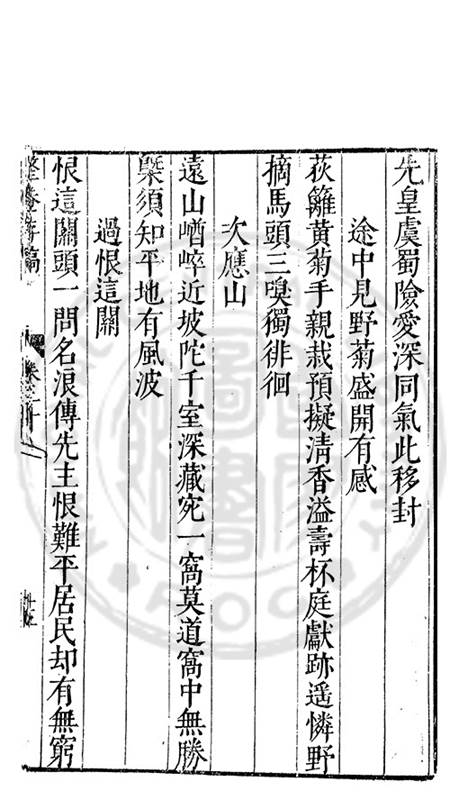 先皇虞蜀險愛深同氣此移封
途中見野菊盛開有感
荻籬黃菊手親栽預擬清香溢壽杯庭獻跡遥憐野
摘馬頭三嗅獨徘徊
次應山
遠山崷崪近坡陀千室深藏宛一窩莫道窩中無勝
槩須知平地有風波
過恨這關
恨這關頭一問名浪傳先主恨難平居民却有無窮